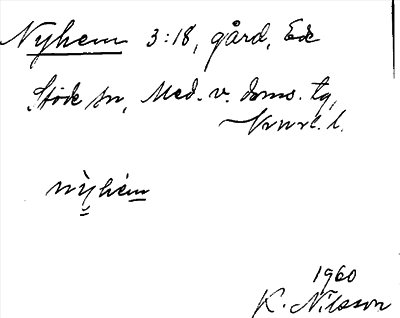 Nyhem 3:18, gård, Ede
Stöde sn, Med. v. doms. tg,
Vrnrl. l.
nỳhém
1960
K. Nilsson